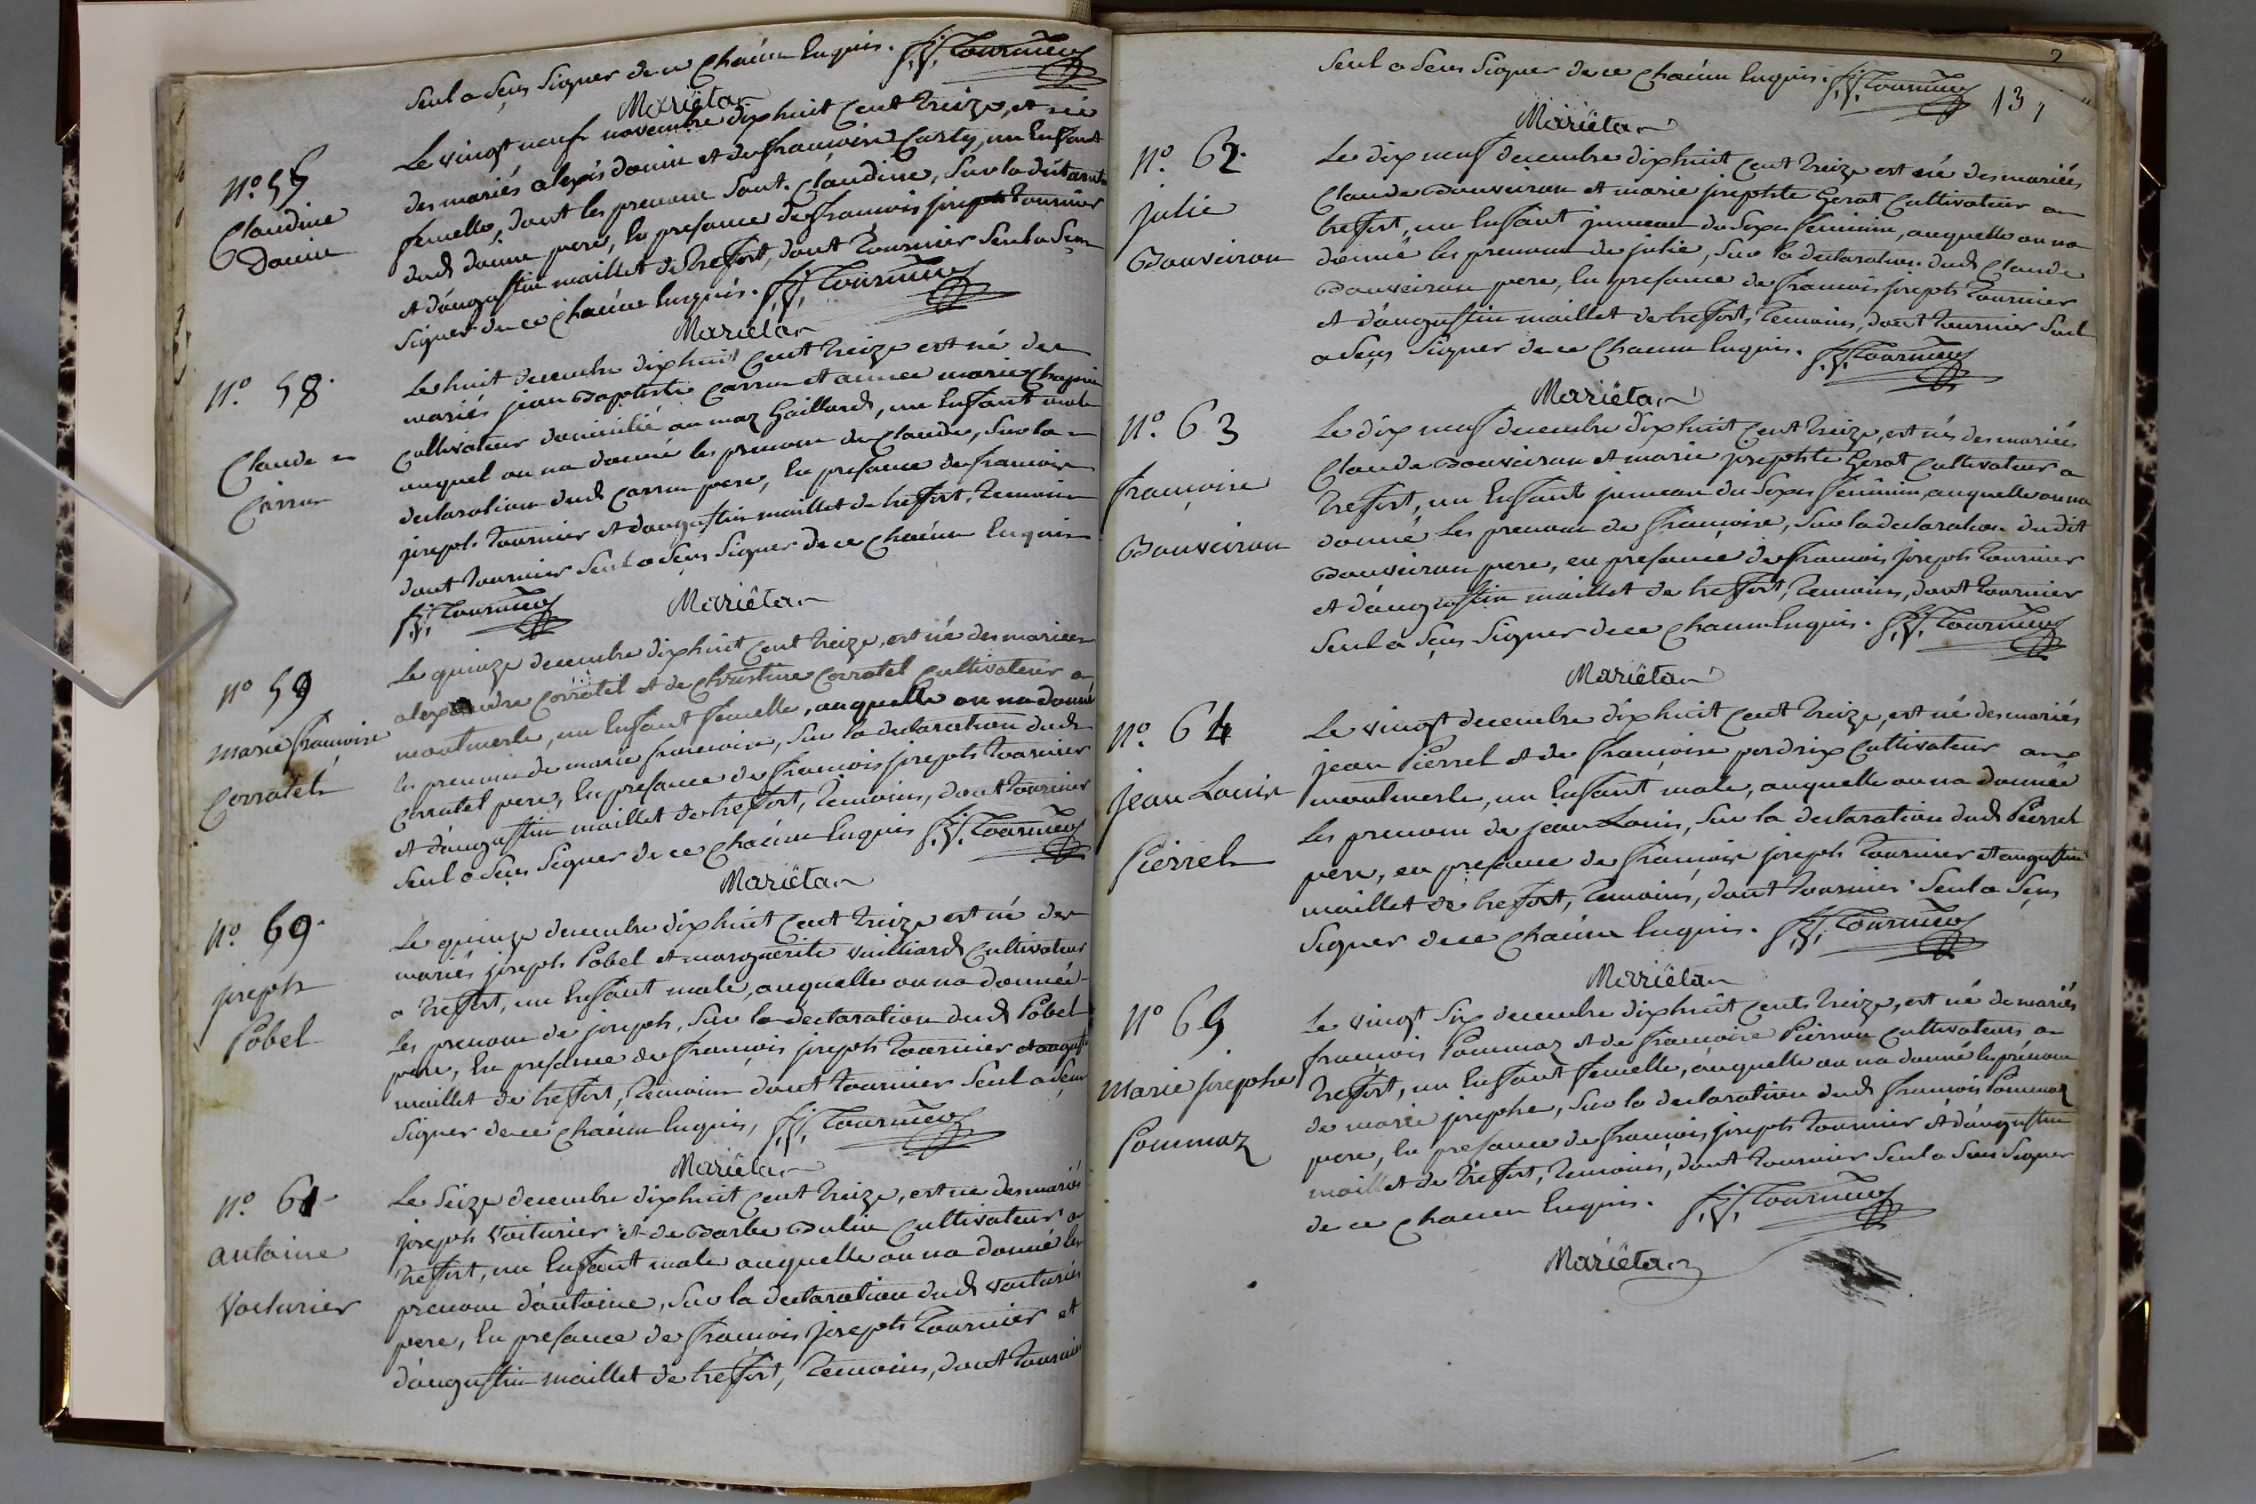 Seul a Sçus Signer de ce Chacun Enquis. F.J. Tournier
Mariétan
N.º 57
Claudine
Donin
Le vingt neuf novembre dix huit Cent treize, est née
des mariés alexis donin et de françoise Carty, un Enfant
femelle, dont les prenom sont Claudine, Sur la declaration
dud. donin pere, En presance de françois joseph tournier
et d'augustin maillet de treffort, dont tournier Seul a Sçus
Signer de ce Chacun Enquis. F.J. Tournier
Mariétan
N.º 58.
Claude
Carron
Le huit decembre dix huit Cent treize est né des
mariés jean Baptiste Carron et annee marie
Cultivateur domicilié au maz Gaillard, un Enfant male
auquel on na donné les prenom de Claude, Sur la
declaration dud. Carron pere, En presance de françois
joseph tournier et d'augustin maillet de treffort, temoins
dont tournier Seul a Sçus Signer de ce Chacun Enquis
F.J. Tournier Mariétan
N.º 59
marie françoise
Corratel
Le quinze decembre dix huit Cent treize, est né des mariées
alexandre Corratel et de Christine Corratel Cultivateur a
montmerle, un Enfant femelle, auquelle on na donné
les prenom de marie françoise, Sur la declaration dud.
Corratel pere, En presance de françois joseph tournier
et d'augustin maillet de treffort, temoins, dont tournier
Seul a Sçus Signer de ce Chacun Enquis F.J. Tournier
Mariétan
N.º 60.
joseph
Pobel
Le quinze decembre dix huit Cent treize est né des
mariés joseph Pobel et marguerite vuilliard Cultivateur
a treffort, un Enfant male, auquelle on na donnée
les prenom de joseph, Sur la declaration dud. Pobel
pere, En presance de françois joseph tournier et august.
maillet de treffort, temoins dont tournier Seul a Sçus
Signer de ce Chacun Enquis, F.J. Tournier
Mariétan
N.º 61.
antoine
Voiturier
Le Seize decembre dix huit Cent treize, est né des mariés
joseph Voiturier et de Barbe Bulin Cultivateur a
treffort, un Enfant male auquelle on na donné les
prenom d'antoine, Sur la declaration dud. voiturier
pere, En presance de françois joseph tournier et
d'augustin maillet de treffort, temoins, dont tournier
Seul a Sçus Signer de ce Chacun Enquis. F.J. Tournier
13
Mariétan
N.º 62.
julie
Bouveiron
Le dix neuf decembre dix huit Cent treize est né des mariés
Claude Bouveiron et marie josephte Gerat Cultivateur a
treffort, un Enfant jumeau du Sexe feminin, auquelle on na
donné les prenom de julie, Sur la declaration dud. Claude
Bouveiron pere, En presance de françois joseph tournier
et d'augustin maillet de treffort, temoins, dont tournier Seul
a Sçus Signer de ce Chacun Enquis. F.J. Tournier
Mariétan
N.º 63
françoise
Bouveiron
Le dix neuf decembre dix huit Cent treize, est née des mariés
Claude Bouveiron et marie josephte Gerat Cultivateur a
treffort, un Enfant jumeau du Sexes feminin, auquelle on na
donné Les prenom de françoise, Sur la declaration dudit
Bouveiron pere, en presance de françois joseph tournier
et d'augustin maillet de treffort, temoins, dont tournier
Seul a Sçus Signer de ce Chacun Enquis. F.J. Tournier
Mariétan
N.º 64
jean Louis
Pierrel
Le vingt decembre dix huit Cent treize, est né des mariés
jean Pierrel et de françoise perdrix Cultivateur a
montmerle, un Enfant male, auquelle on na donnée
Les prenom de jean Louis, Sur la declaration dud. Pierrel
pere, en presance de françois joseph tournier et augustin
maillet de treffort, temoins, dont tournier Seul a Sçus
Signer de ce Chacun Enquis. F.J. Tournier
Mariétan
N.º 65
Marie josephe
Pommaz
Le vingt Six decembre dix huit Cents treize, est né de mariés
françois Pommaz et de françoise Pierron Cultivateurs a
treffort, un Enfant femelle, auquelle on na donné les prénom
de marie josephe, Sur la declaration dud. françois Pommaz
pere, En presance de françois joseph tournier et d'augustin
maillet de treffort, temoins, dont tournier Seul a Sçus Signer
de ce Chacun Enquis. F.J. Tournier
Mariétan